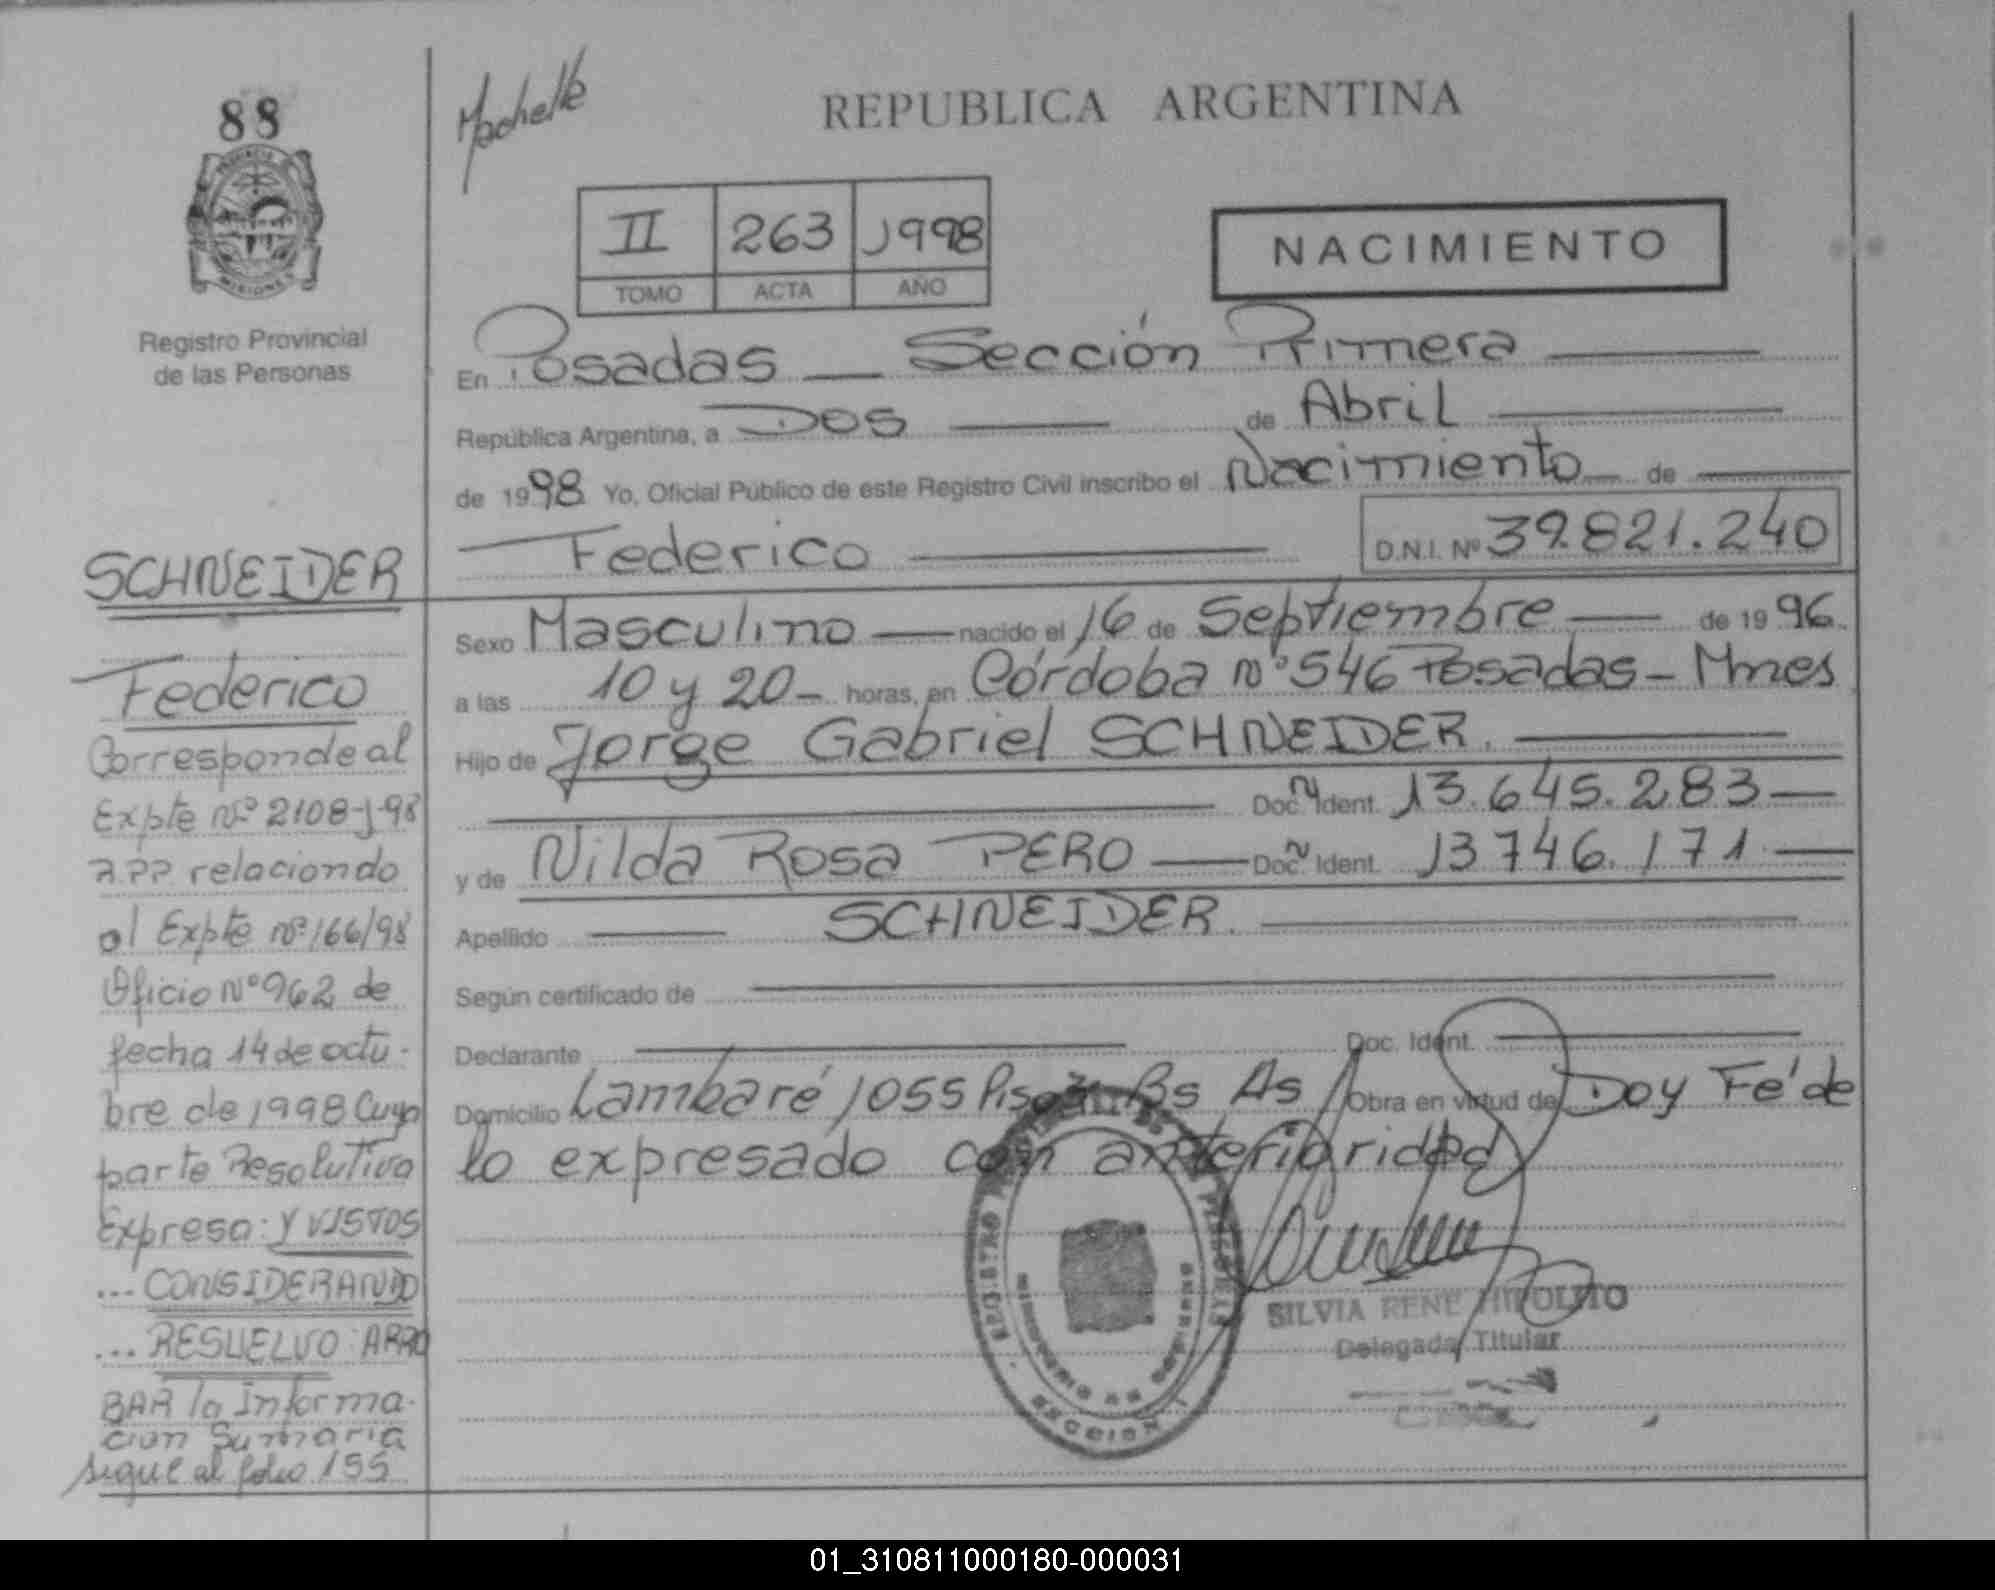 88
Registro Provincial
de las Personas
REPUBLICA ARGENTINA
II 263 1998
TOMO ACTA AÑO
NACIMIENTO
En Posadas — Sección Primera
República Argentina, a Dos de Abril
de 1998 Yo, Oficial Público de este Registro Civil inscribo el Nacimiento de
Federico D.N.I. Nº 39.821.240
Sexo Masculino nacido el 16 de Septiembre de 1996
a las 10 y 20 horas, en Córdoba nº 546 Posadas - Mnes
Hijo de Jorge Gabriel SCHNEIDER.
Doc. Ident. 13.645.283
y de Nilda Rosa PERO Doc. Ident. 13746.171
Apellido SCHNEIDER.
Según certificado de
Declarante Doc. Ident.
Domicilio Lambaré 1055 Bs As Obra en virtud de Doy Fé de
lo expresado con anterioridad
SILVIA RENE HIPOLITO
Delegada Titular
SCHNEIDER
Federico
Corresponde al
Expte nº 2108-J-98
relaciondo
al Expte nº 166/98
Oficio Nº 962 de
fecha 14 de octu-
bre de 1998 Cuya
parte Resolutiva
Expresa: Y VISTOS
... CONSIDERANDO
... RESUELVO: APRO
BAR la Informa-
cion Sumaria
sigue al folio 155
01_310811000180-000031